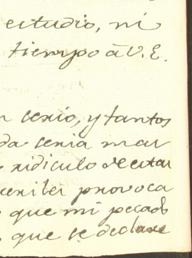 estudio, ni
tiempo á V. E.
n serio, y tantos
da seria mas
ridiculo de estar
scribir provoca
que mi pecado
que se declare